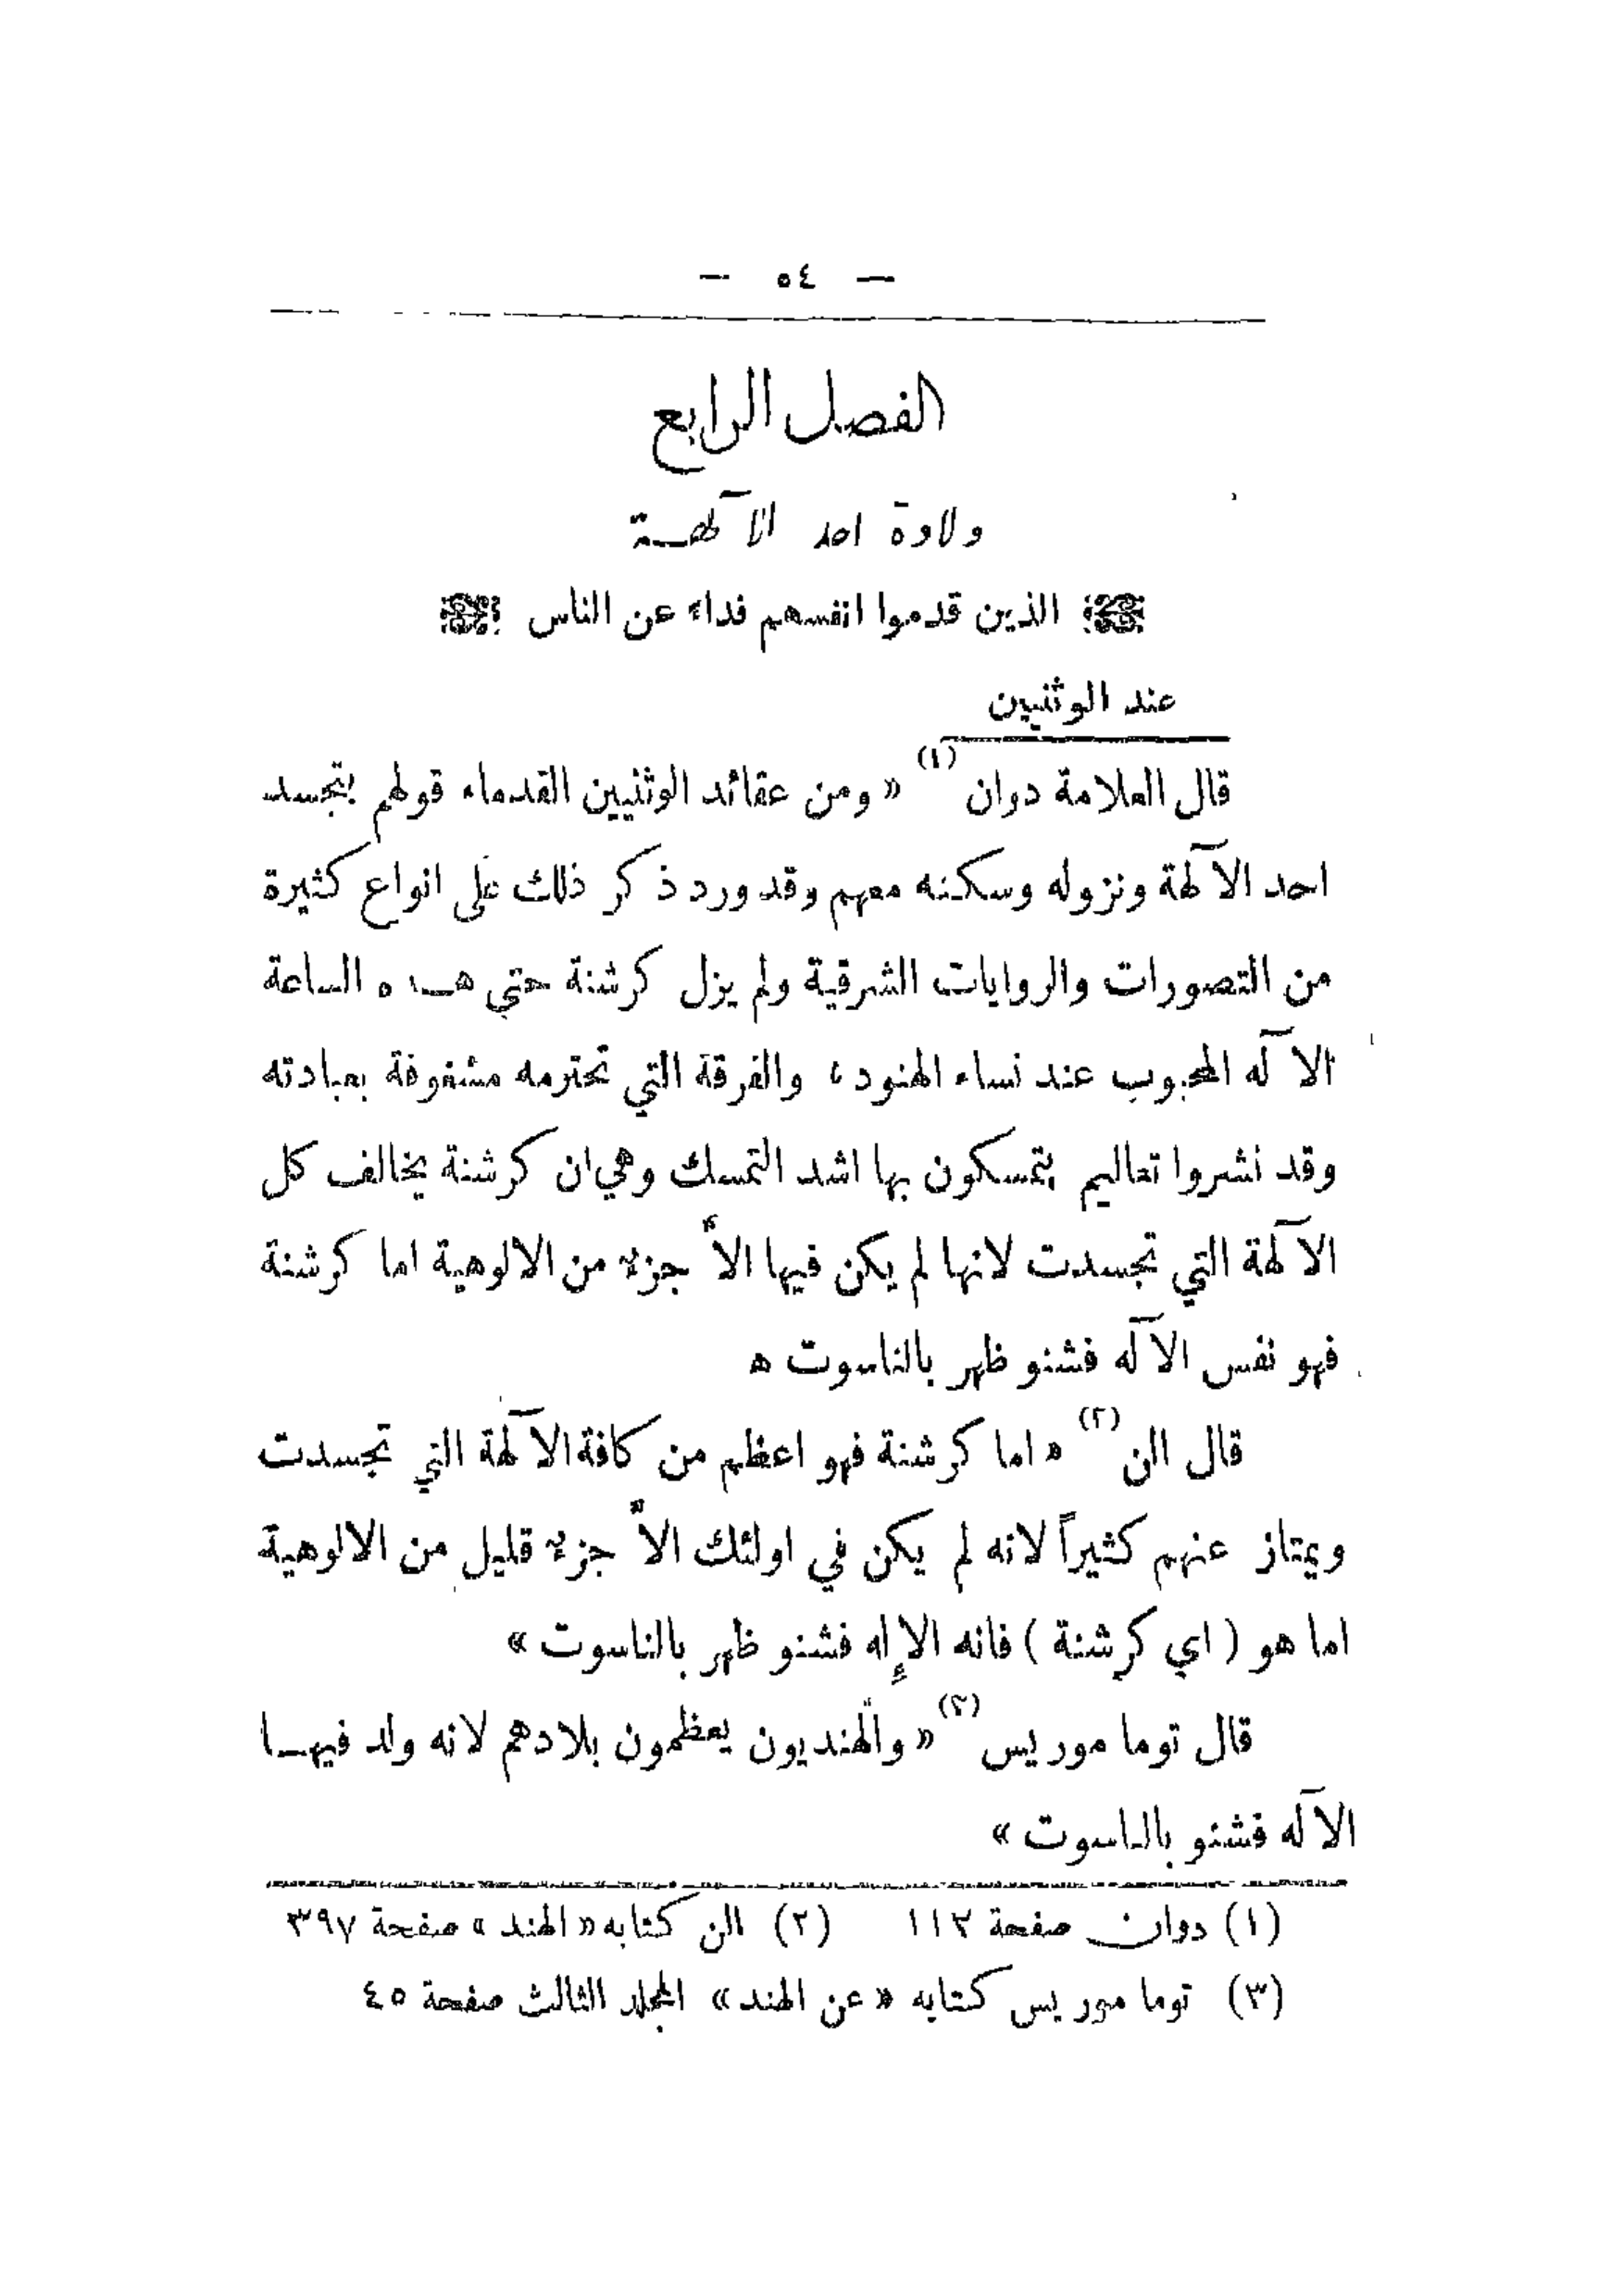 — ٥٤ —
الفصل الرابع
ولادة احد الآلهـة
الذين قدموا انفسهم فداء عن الناس
عند الوثنيين
قال العلامة دوان (١) « ومن عقائد الوثنيين القدماء قولهم بتجسد
احد الآلهة ونزوله وسكنه معهم وقد ورد ذكر ذلك على انواع كثيرة
من التصورات والروايات الشرقية ولم يزل كرشنة حتى هـذه الساعة
الآله المحبوب عند نساء الهنود ، والفرقة التي تحترمه مشغوفة بعبادته
وقد نشروا تعاليم يتمسكون بها اشد التمسك وهي ان كرشنة يخالف كل
الآلهة التي تجسدت لانها لم يكن فيها الاَّ جزء من الالوهية اما كرشنة
فهو نفس الآله فشنو ظهر بالناسوت ه
قال الن (٢) « اما كرشنة فهو اعظم من كافة الآلهة التي تجسدت
ويمتاز عنهم كثيراً لانه لم يكن في اولئك الاَّ جزء قليل من الالوهية
اما هو ( اي كرشنة ) فانه الإله فشنو ظهر بالناسوت »
قال توما موريس (٣) « والهنديون يعظمون بلادهم لانه ولد فيهـا
الآله فشنو بالناسوت »
(١) دوان صفحة ١١٢ (٢) الن كتابه « الهند » صفحة ٣٩٧
(٣) توما موريس كتابه « عن الهند » المجلد الثالث صفحة ٤٥